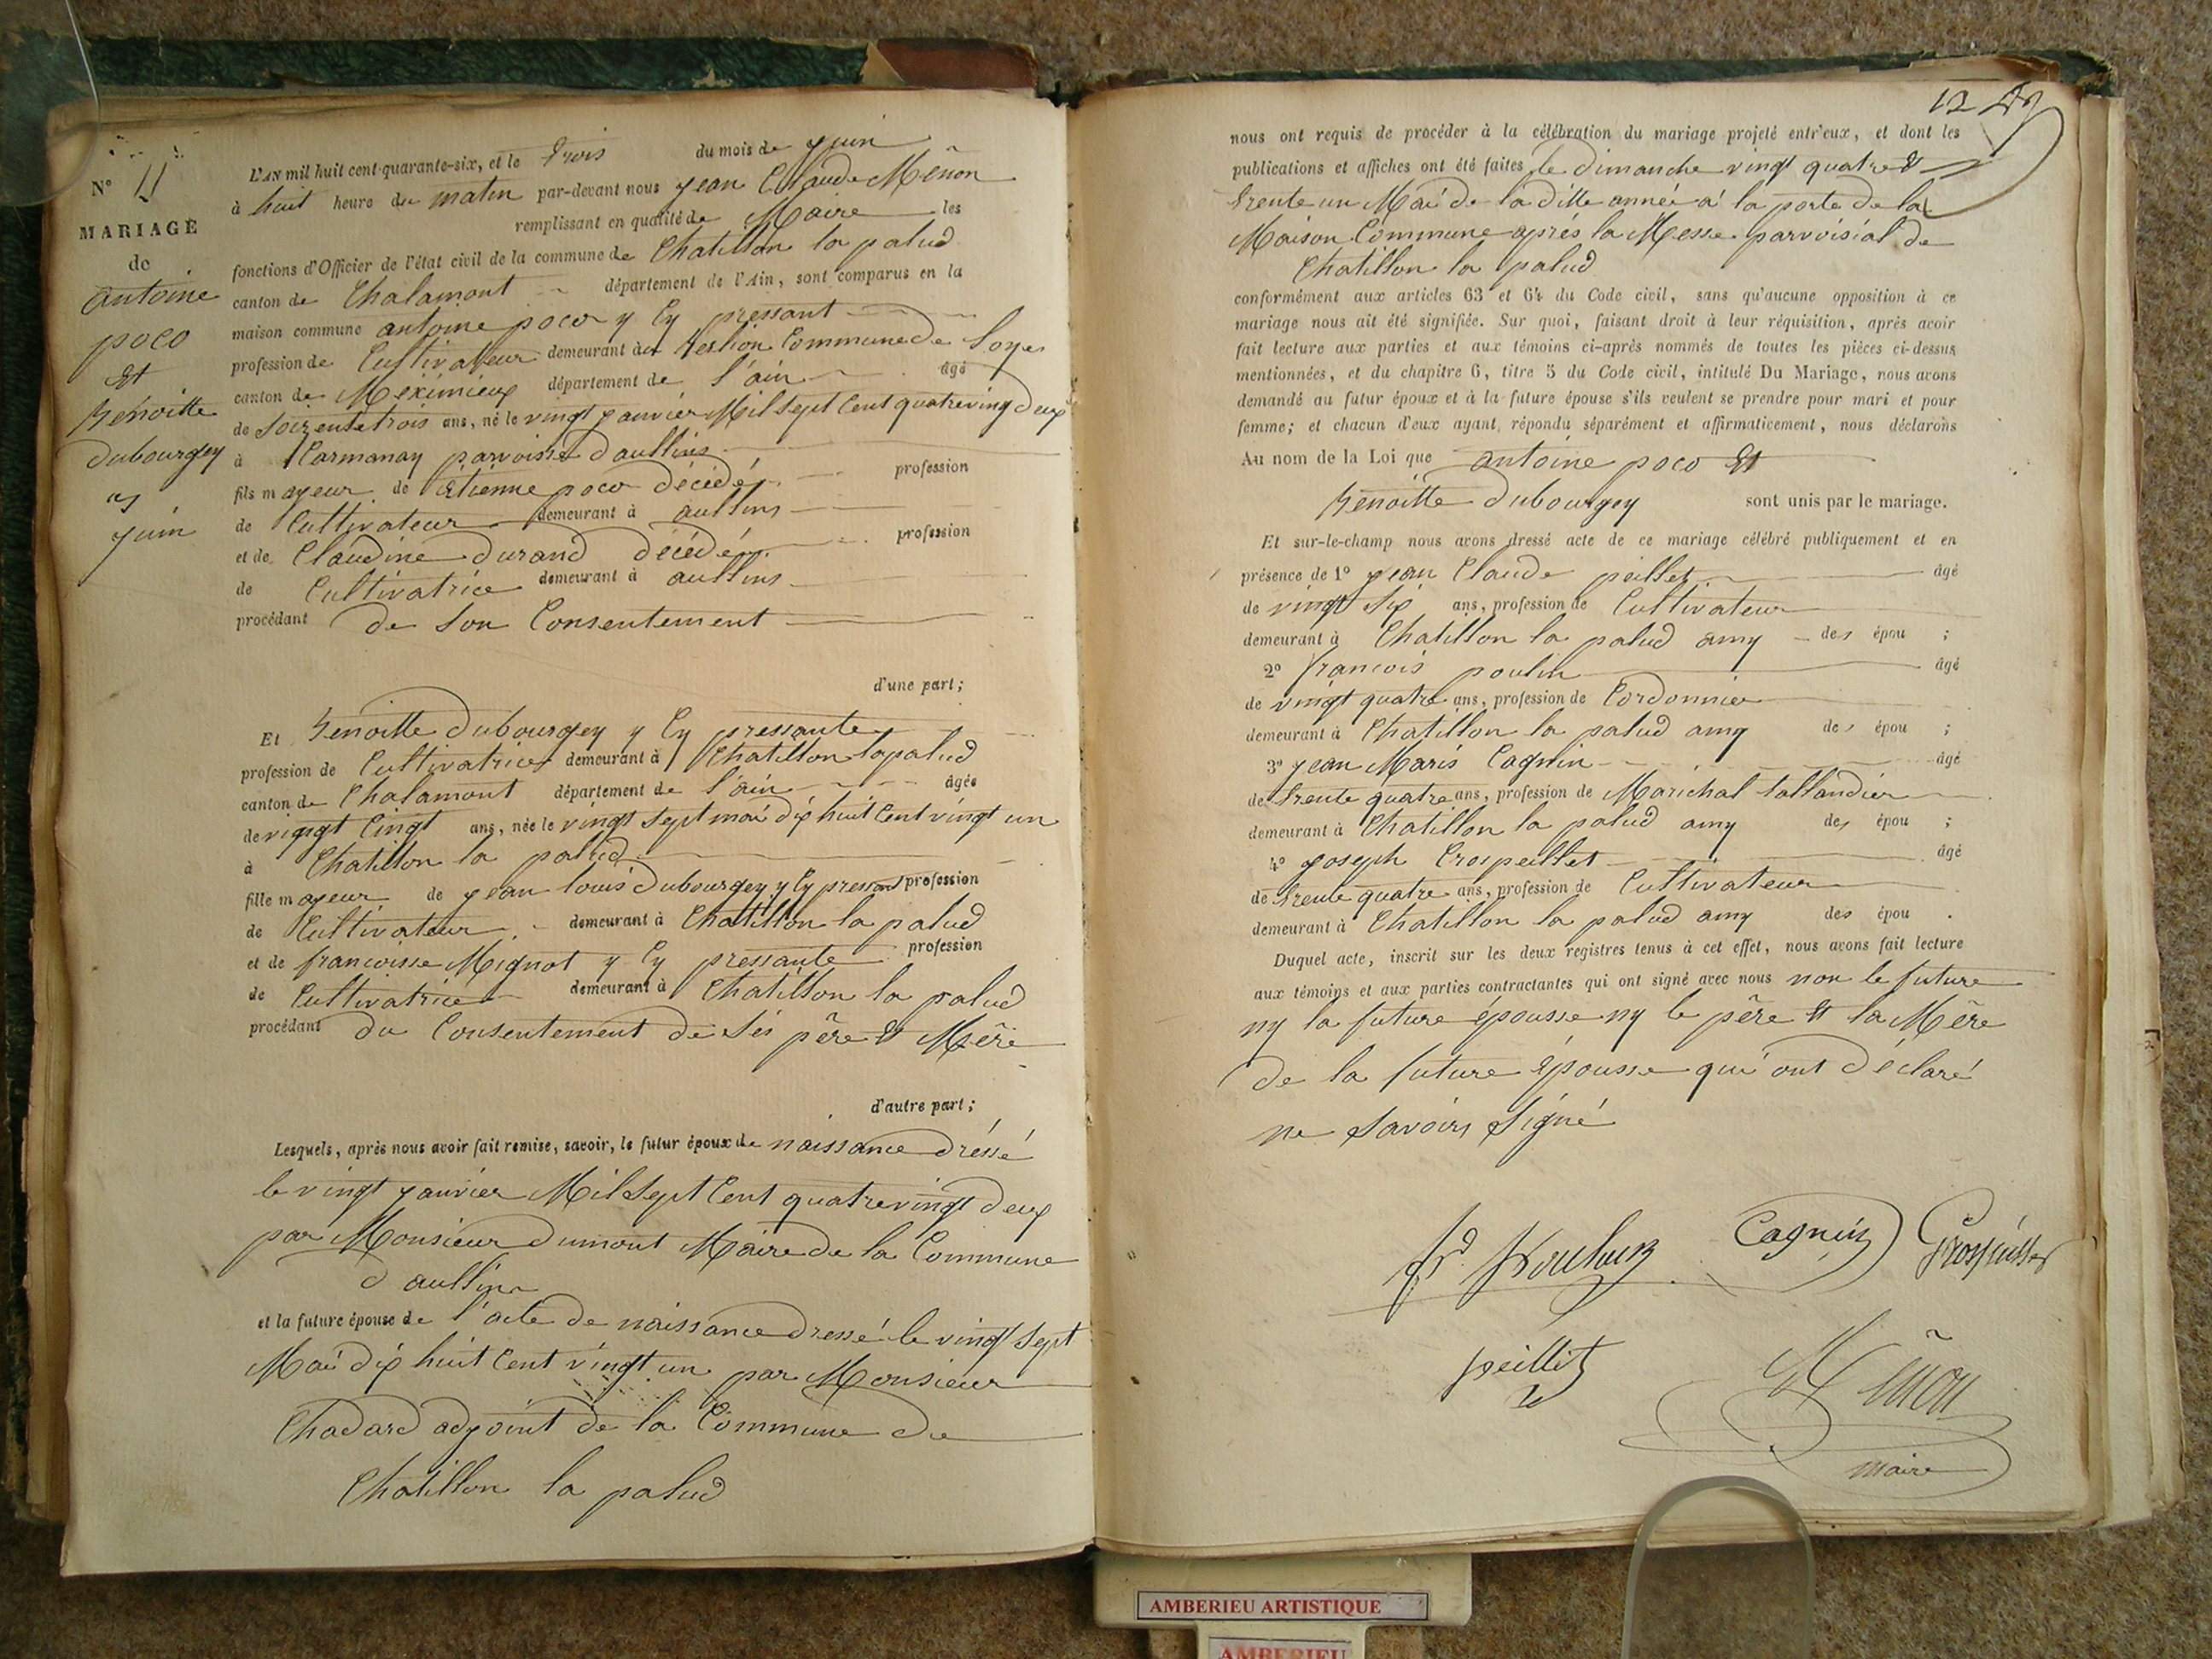 N° 11
MARIAGE
de
antoine
poco
Et
Benoitte
dubourgey
3
juin
L'AN mil huit cent quarante-six, et le trois du mois de juin
à huit heure du matin par-devant nous jean Claude Menon
remplissant en qualité de Maire les
fonctions d'Officier de l'état civil de la commune de Chatillon la palud
canton de Chalamont département de l'Ain, sont comparus en la
maison commune antoine poco y Cy pressant
profession de Cultivateur demeurant à Commune de Loyes
canton de Meximieux département de l'ain âgé
de soixentetrois ans, né le vingt janvier Mil Sept Cent quatreving deux
à parroisse d'aullins
fils mayeur de Etienne poco décédé profession
de Cultivateur demeurant à aullins
et de Claudine durand décédé profession
de Cultivatrice demeurant à aullins
procédant de Son Consentement
d'une part;
Et Benoitte dubourgey y Cy pressante
profession de Cultivatrice demeurant à Chatillon lapalud
canton de Chalamont département de l'ain âgée
de vingt Cingt ans, née le vingt Sept mai dix huit Cent vingt un
à Chatillon la palud
fille mayeur de jean louis dubourgey y Cy pressant profession
de Cultivateur demeurant à Chatillon la palud
et de francoisse Mignot y Cy pressante profession
de Cultivatrice demeurant à Chatillon la palud
procédant du Consentement de Sés père Et Mère
d'autre part;
Lesquels, après nous avoir fait remise, savoir, le futur époux de naissance dréssé
le vingt janvier Mil Sept Cent quatrevingt deux
par Monsieur dumont Maire de la Commune
d'aullins
et la future épouse de l'acte de naissance dressé le vingt Sept
Mai dix huit Cent vingt un par Monsieur
Chadard adjoint de la Commune de
Chatillon la palud
12
nous ont requis de procéder à la célébration du mariage projeté entr'eux, et dont les
publications et affiches ont été faites le dimanche vingt quatre Et
trente un Mai de la ditte année à la porte de la
Maison Commune aprés la Messe parroisial de
Chatillon la palud
conformément aux articles 63 et 64 du Code civil, sans qu'aucune opposition à ce
mariage nous ait été signifiée. Sur quoi, faisant droit à leur réquisition, après avoir
fait lecture aux parties et aux témoins ci-après nommés de toutes les pièces ci-dessus
mentionnées, et du chapitre 6, titre 5 du Code civil, intitulé Du Mariage, nous avons
demandé au futur époux et à la future épouse s'ils veulent se prendre pour mari et pour
femme; et chacun d'eux ayant répondu séparément et affirmativement, nous déclarons
Au nom de la Loi que antoine poco Et
Benoitte dubourgey sont unis par le mariage.
Et sur-le-champ nous avons dressé acte de ce mariage célébré publiquement et en
présence de 1° jean Claude peillet âgé
de vingt Six ans, profession de Cultivateur
demeurant à Chatillon la palud amy des épou ;
2° francois poulin âgé
de vingt quatre ans, profession de Cordonnier
demeurant à Chatillon la palud amy des épou ;
3° jean Marie Cagnin âgé
de trente quatre ans, profession de Marichal tallandier
demeurant à Chatillon la palud amy des épou ;
4° joseph Crospeillet âgé
de trente quatre ans, profession de Cultivateur
demeurant à Chatillon la palud amy des épou .
Duquel acte, inscrit sur les deux registres tenus à cet effet, nous avons fait lecture
aux témoins et aux parties contractantes qui ont signé avec nous non le future
ny la future épousse ny le père Et la Mère
de la future épousse qui ont déclaré
ne Savoirs Signé
Cagnin
peillet
Menon
maire
AMBERIEU ARTISTIQUE
AMBERIEU